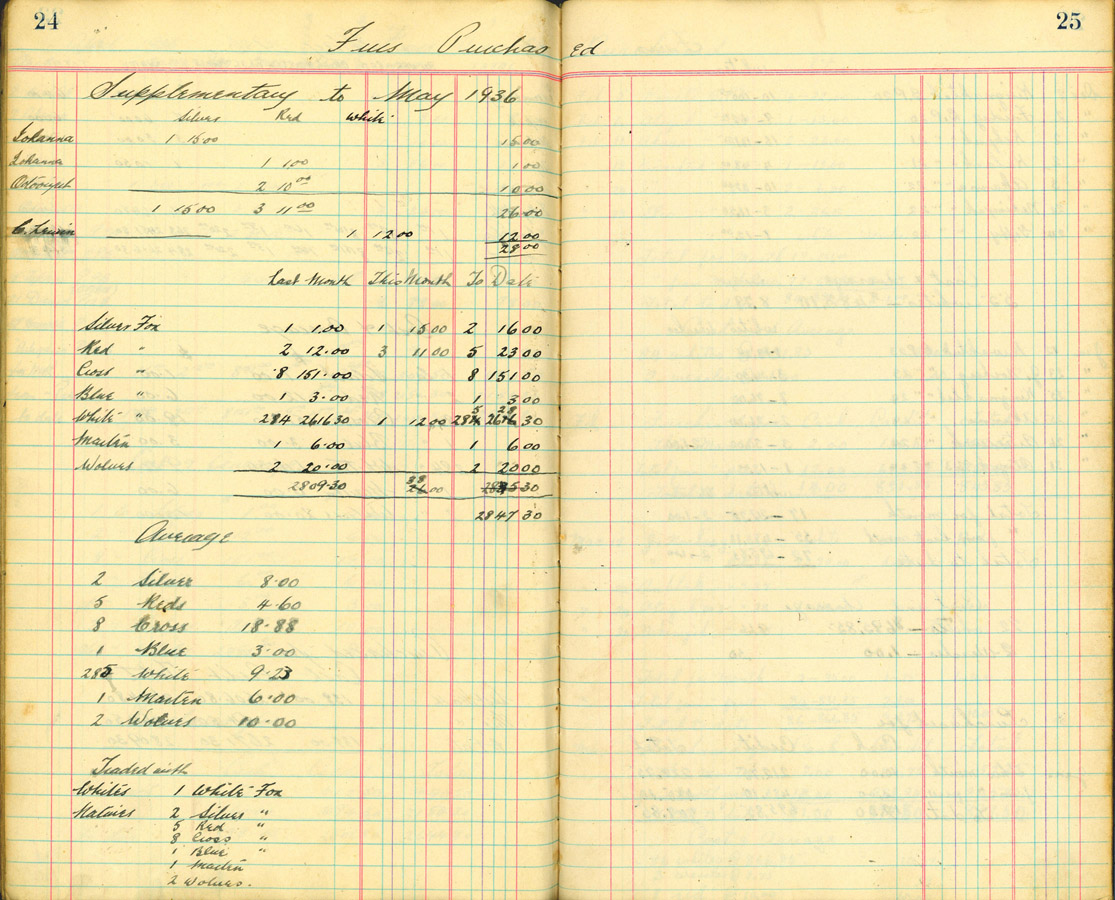 24
25
Furs Purchased
Supplementary to May 1936
Silvers Red White
Johanna 1 15.00 15.00
Johanna 1 1.00 1.00
2 10.00 10.00
1 15.00 3 11.00 26.00
1 12.00 12.00
28.00
Last Month This Month To Date
Silver Fox 1 1.00 1 15.00 2 16.00
Red " 2 12.00 3 11.00 5 23.00
Cross " 8 151.00 8 151.00
Blue " 1 3.00 1 3.00
White " 284 2616.30 1 12.00 285 2628.30
Marten 1 6.00 1 6.00
Wolves 2 20.00 2 20.00
2809.30 38.00
2847.30
Average
2 Silver 8.00
5 Reds 4.60
8 Cross 18.88
1 Blue 3.00
285 White 9.23
1 Marten 6.00
2 Wolves 10.00
Traded with
Whites 1 White Fox
Natives 2 Silver "
5 Red "
8 Cross "
1 Blue "
1 Marten
2 Wolves.